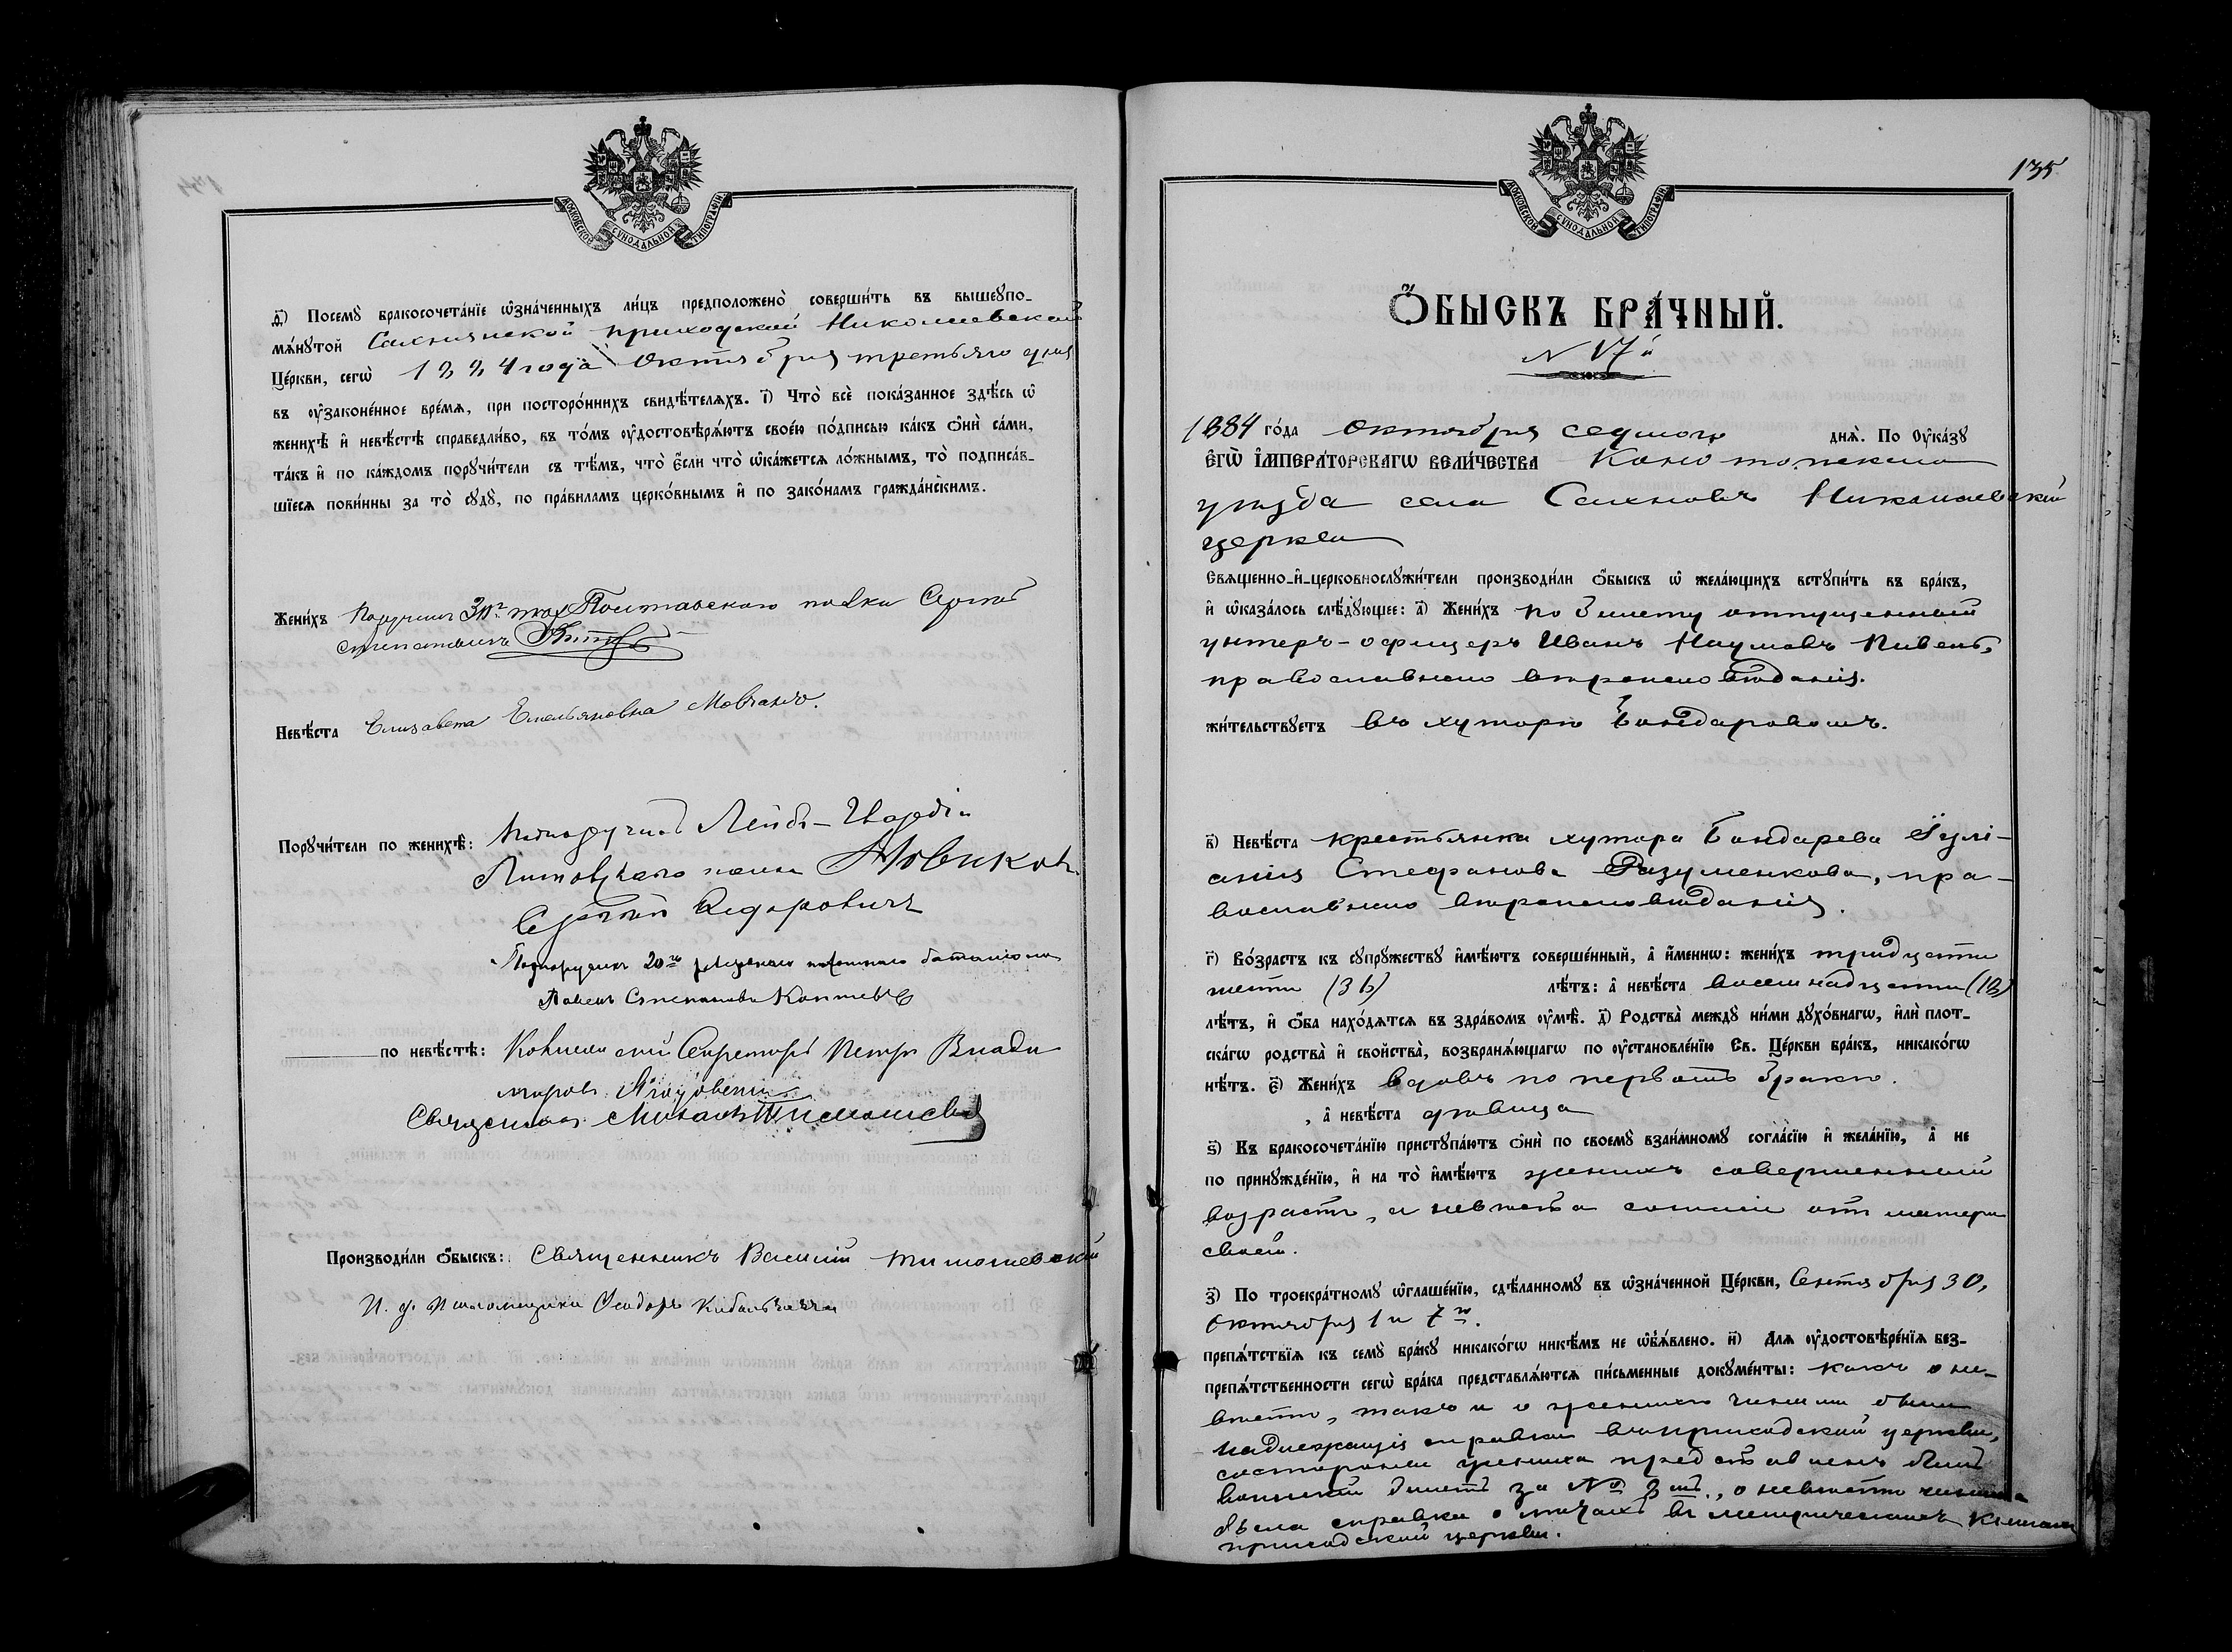 МОСКОВСКОЙ СУНОДАЛЬНОЙ ТИПОГРАФІИ
ѳ҃) Посемꙋ̀ бракосочета́нїе ѡ҆зна́ченныхъ ли́цъ предположено̀ соверши́ть въ вышеꙋпо-
мѧ́нꙋтой Сахнянской приходской Николаевской
Це́ркви, сегѡ̀ 1884 года Октября третьяго дня
въ ᲂу҆законе́нное вре́мѧ, при посторо́ннихъ свидѣ́телѧхъ. і҃) Что̀ всѐ пока́занное здѣ́сь ѡ҆
женихѣ̀ и҆ невѣ́стѣ справедли́во, въ то́мъ ᲂу҆достовѣрѧ́ютъ свое́ю по́дписью ка́къ ѻ҆нѝ са́ми,
та́къ и҆ по ка́ждомъ порꙋчи́тели съ тѣ́мъ, что̀ є҆́сли что̀ ѡ҆ка́жетсѧ ло́жнымъ, то̀ подписа́в-
шїесѧ пови́нны за то̀ сꙋдꙋ̀, по пра́виламъ церко́внымъ и҆ по зако́намъ гражда́нскимъ.
Жени́хъ Поручикъ Полтавскаго полка Сергей
Степановичъ
Невѣ́ста Елизавета Емельяновна Мовчанъ.
Порꙋчи́тели по женихѣ̀: Подпоручикъ Лейбъ-Гвардіи
Литовскаго полка Новиковъ
Сергѣй Федоровичъ
Подпоручикъ 20го резервнаго пѣхотнаго баталіона
Павелъ Степановъ Коптевъ
по невѣ́стѣ: Коллежскій Секретарь Петръ Влади
міровъ
Священникъ Михаилъ Тимошевскій
Производи́ли ѻ҆́быскъ: Священникъ Василій Тимошевскій
И. д. Псаломщика Феодоръ Кибальчичъ
135
МОСКОВСКОЙ СУНОДАЛЬНОЙ ТИПОГРАФІИ
Ѻ҆́БЫСКЪ БРА́ЧНЫЙ.
N 17й
1884 го́да Октября седмого днѧ̀. По Оу҆ка́зꙋ
Є҆ГѠ̀ И҆МПЕРА́ТОРСКАГѠ ВЕЛИ́ЧЕСТВА Конотопскаго
уѣзда села Сахновъ Николаевской
церкви
Свѧще́нно-и҆-церковнослꙋжи́тели производи́ли ѻ҆́быскъ ѡ҆ жела́ющихъ вступи́ть въ бра́къ,
и҆ ѡ҆каза́лось слѣ́дꙋющее: а҃) Жени́хъ по билету отпущенный
унтеръ-офицеръ Иванъ Наумовъ Пивень,
православнаго вѣроисповѣданія.
жи́тельствꙋетъ въ хуторѣ Бондаровомъ.
в҃) Невѣ́ста крестьянка хутора Бондарева Іулі-
анія Стефанова Разуменкова, пра-
вославнаго вѣроисповѣданія.
г҃) Во́зрастъ къ сꙋпрꙋ́жествꙋ и҆мѣ́ютъ соверше́нный, а҆ и҆́меннѡ: жени́хъ тридцати
шести (36) лѣ́тъ: а҆ невѣ́ста восемнадцати (18)
лѣ́тъ, и҆ ѻ҆́ба нахо́дѧтсѧ въ здра́вомъ ᲂу҆мѣ̀. д҃) Родства̀ междꙋ̀ ни́ми дꙋхо́внагѡ, и҆лѝ плот-
ска́гѡ родства̀ и҆ свойства̀, возбранѧ́ющагѡ по ᲂу҆становле́нїю Св. Це́ркви бра́къ, никако́гѡ
нѣ́тъ. є҃) Жени́хъ вдовъ по первомъ бракѣ.
, а҆ невѣ́ста дѣвица
ѕ҃) Къ бракосочета́нїю пристꙋпа́ютъ ѻ҆нѝ по своемꙋ̀ взаи́мномꙋ согла́сїю и҆ жела́нїю, а҆ не
по принꙋжде́нїю, и҆ на то̀ и҆мѣ́ютъ женихъ совершенный
возрастъ, а невѣста согласіе отъ матери
своей.
з҃) По троекра́тномꙋ ѡ҆глаше́нїю, сдѣ́ланномꙋ въ ѡ҆зна́ченной Це́ркви, Сентября 30,
Октября 1 и 7го.
препѧ́тствїѧ къ семꙋ̀ бра́кꙋ никако́гѡ никѣ́мъ не ѡ҆б̾ѧ́влено. и҃) Для ᲂу҆достовѣре́нїѧ без-
препѧ́тственности сегѡ̀ бра́ка представлѧ́ютсѧ пи́сьменные докꙋме́нты: какъ о не-
вѣстѣ, такъ и о женихѣ чинимы были
надлежащія справки въ приходской церкви,
со стороны жениха представленъ былъ
воинскій билетъ за №, о невѣстѣ чинима
была справка о лѣтахъ въ метрическихъ книгахъ
приходской церкви.